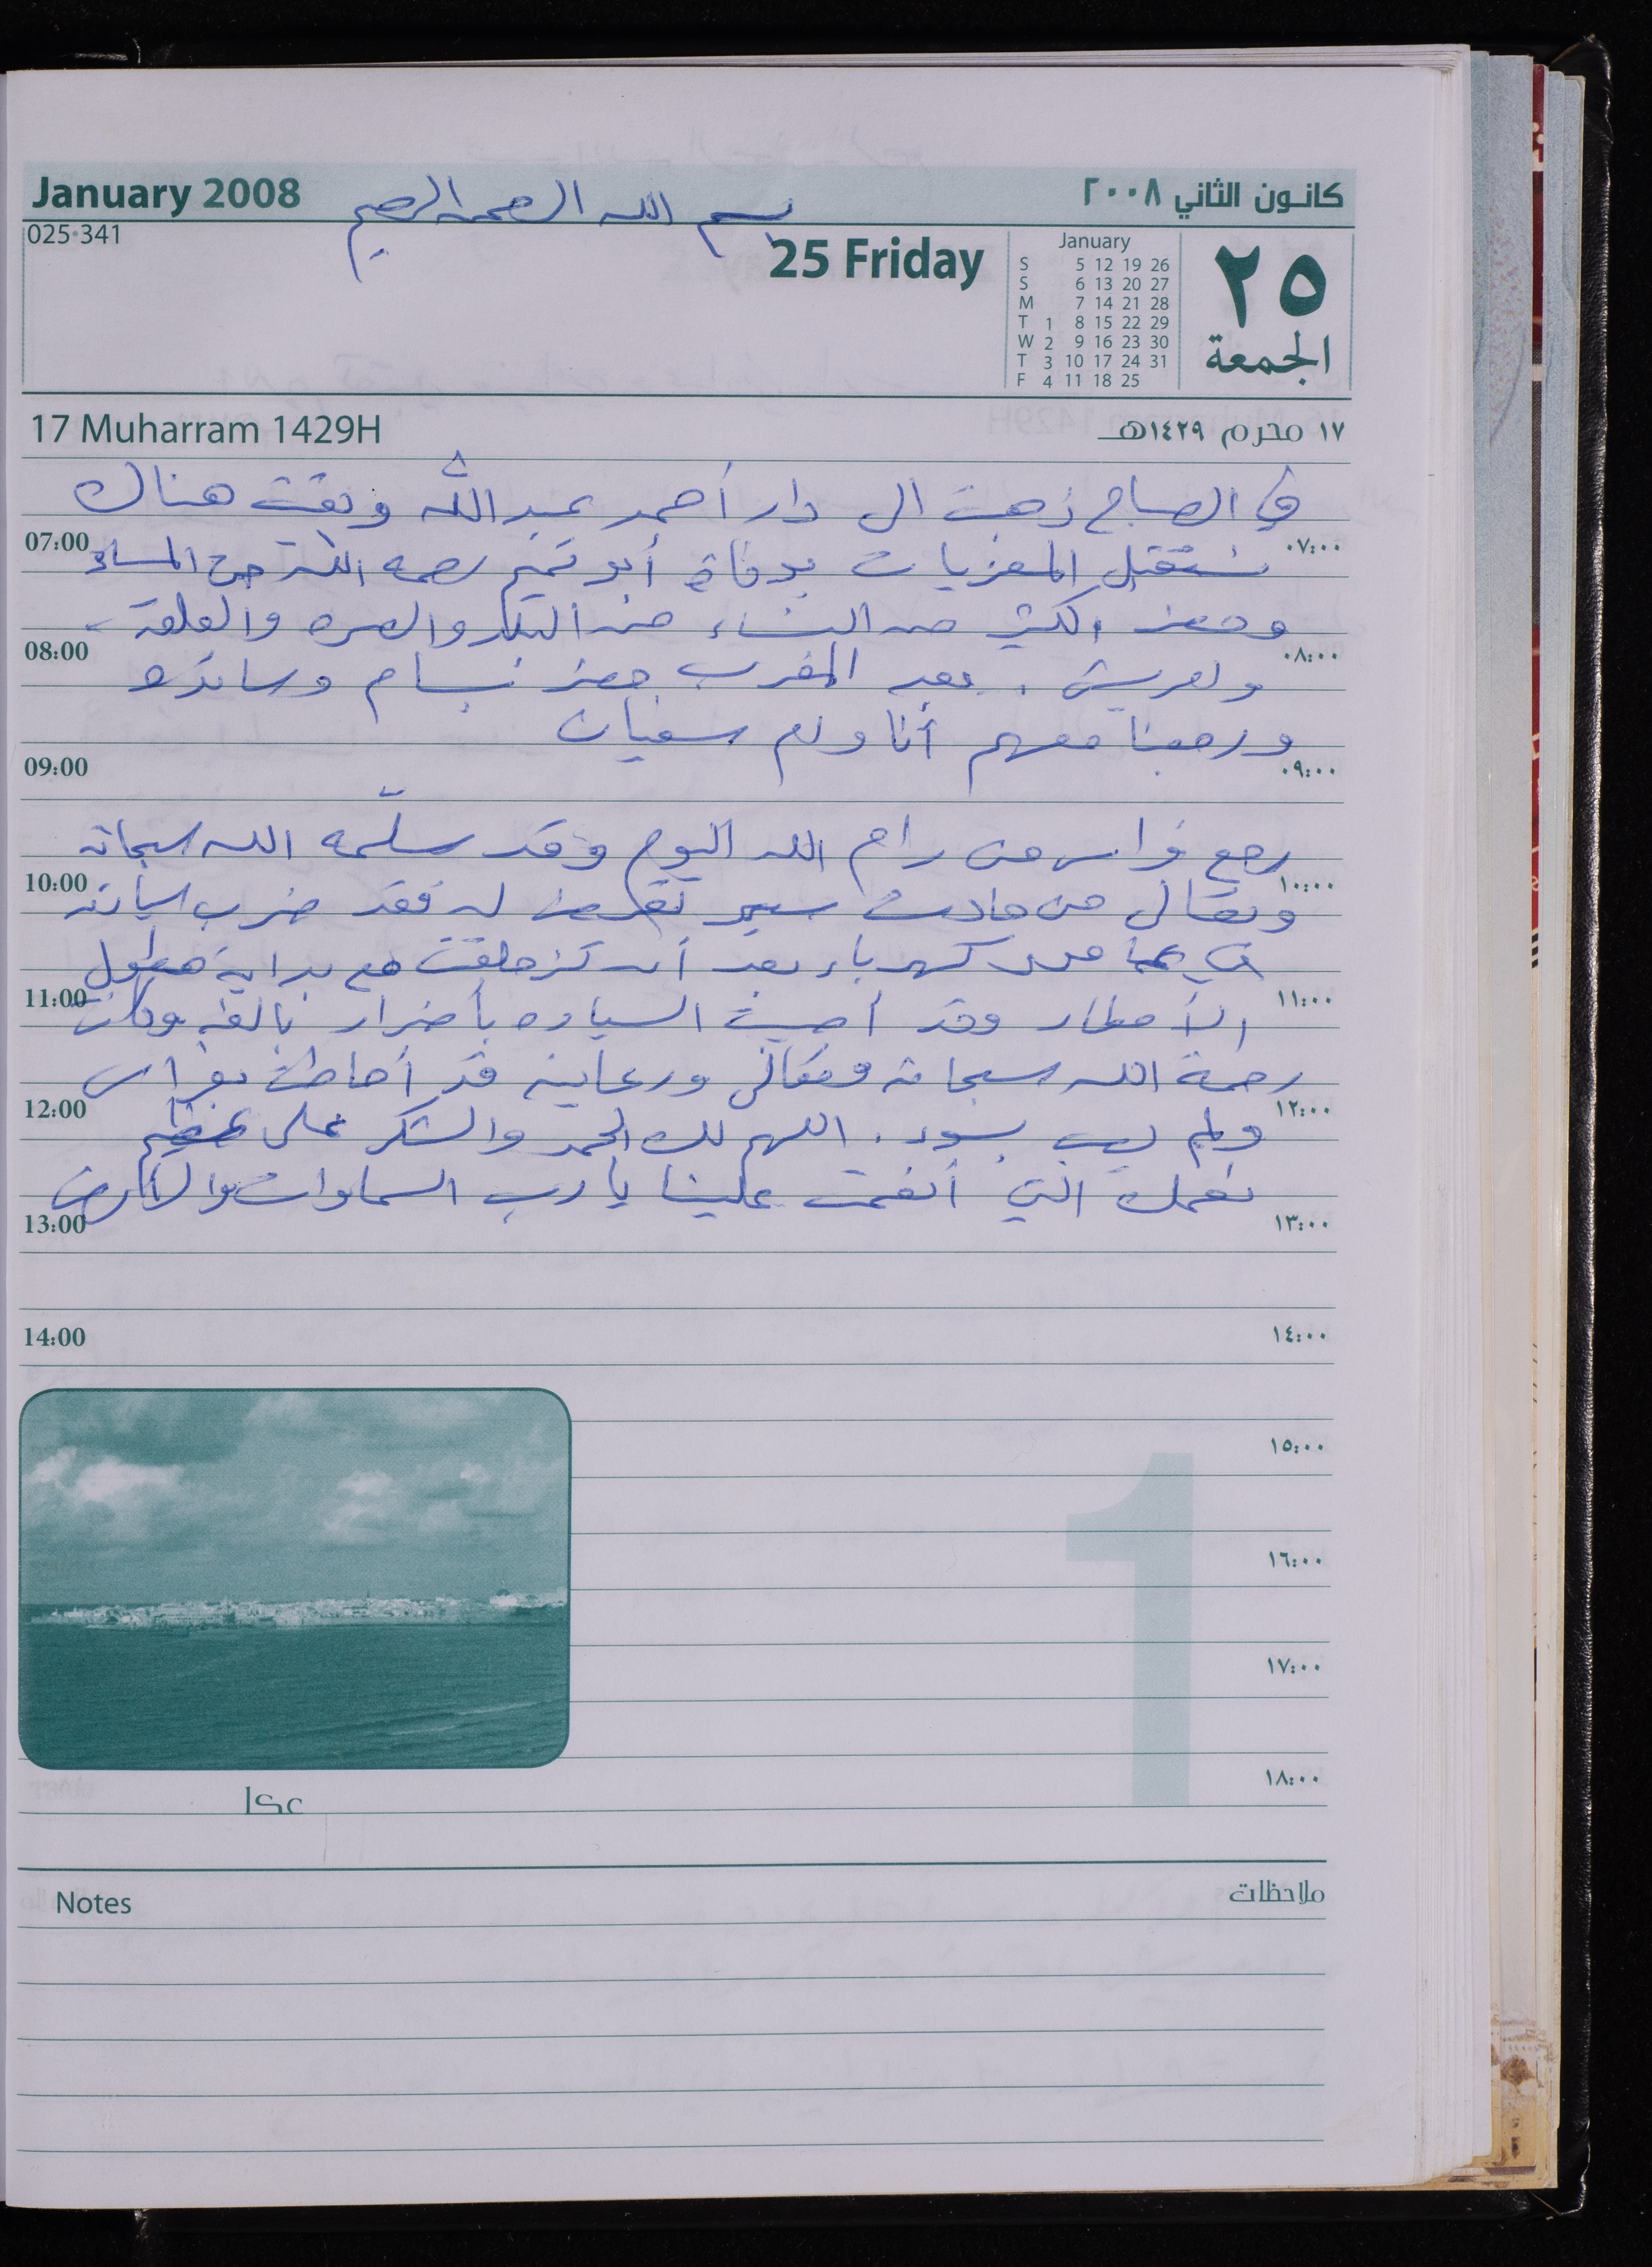 January 2008
كانون الثاني ٢٠٠٨
بسم الله الرحمن الرحيم
025-341
25 Friday
January
S 5 12 19 26
S 6 13 20 27
M 7 14 21 28
T 1 8 15 22 29
W 2 9 16 23 30
T 3 10 17 24 31
F 4 11 18 25
٢٥
الجمعة
17 Muharram 1429H
١٧ محرم ١٤٢٩هـ
في الصباح ذهبت الى دار أحمد عبد الله وبقيت هناك
07:00 ٠٧:٠٠
نستقبل المعزيات بوفاة أبو تميم رحمه الله حتى المساء
وحضر الكثير من النساء من البلد والصره والعلقة
08:00 ٠٨:٠٠
ولعريش . بعد المغرب حضر بسام وسائده
ورجعنا معهم أنا وام سفيان
09:00 ٠٩:٠٠
رجع فراس من رام الله اليوم وقد سلّمه الله سبحانه
10:00 ١٠:٠٠
وتعالى من حادث سير تعرض له فقد ضرب سيارته
في عمود كهرباء بعد أن تزحلقت مع بداية هطول
11:00 ١١:٠٠
الأمطار وقد أصيبت السياره بأضرار بالغه وكانت
رحمة الله سبحانه وتعالى ورعايته قد أحاطت بفراس
12:00 ١٢:٠٠
ولم يصب بسوء . اللهم لك الحمد والشكر على عظيم
نعمك التي أنعمت علينا يا رب السماوات والأرض
13:00 ١٣:٠٠
14:00 ١٤:٠٠
١٥:٠٠
1
١٦:٠٠
١٧:٠٠
١٨:٠٠
عكا
Notes
ملاحظات